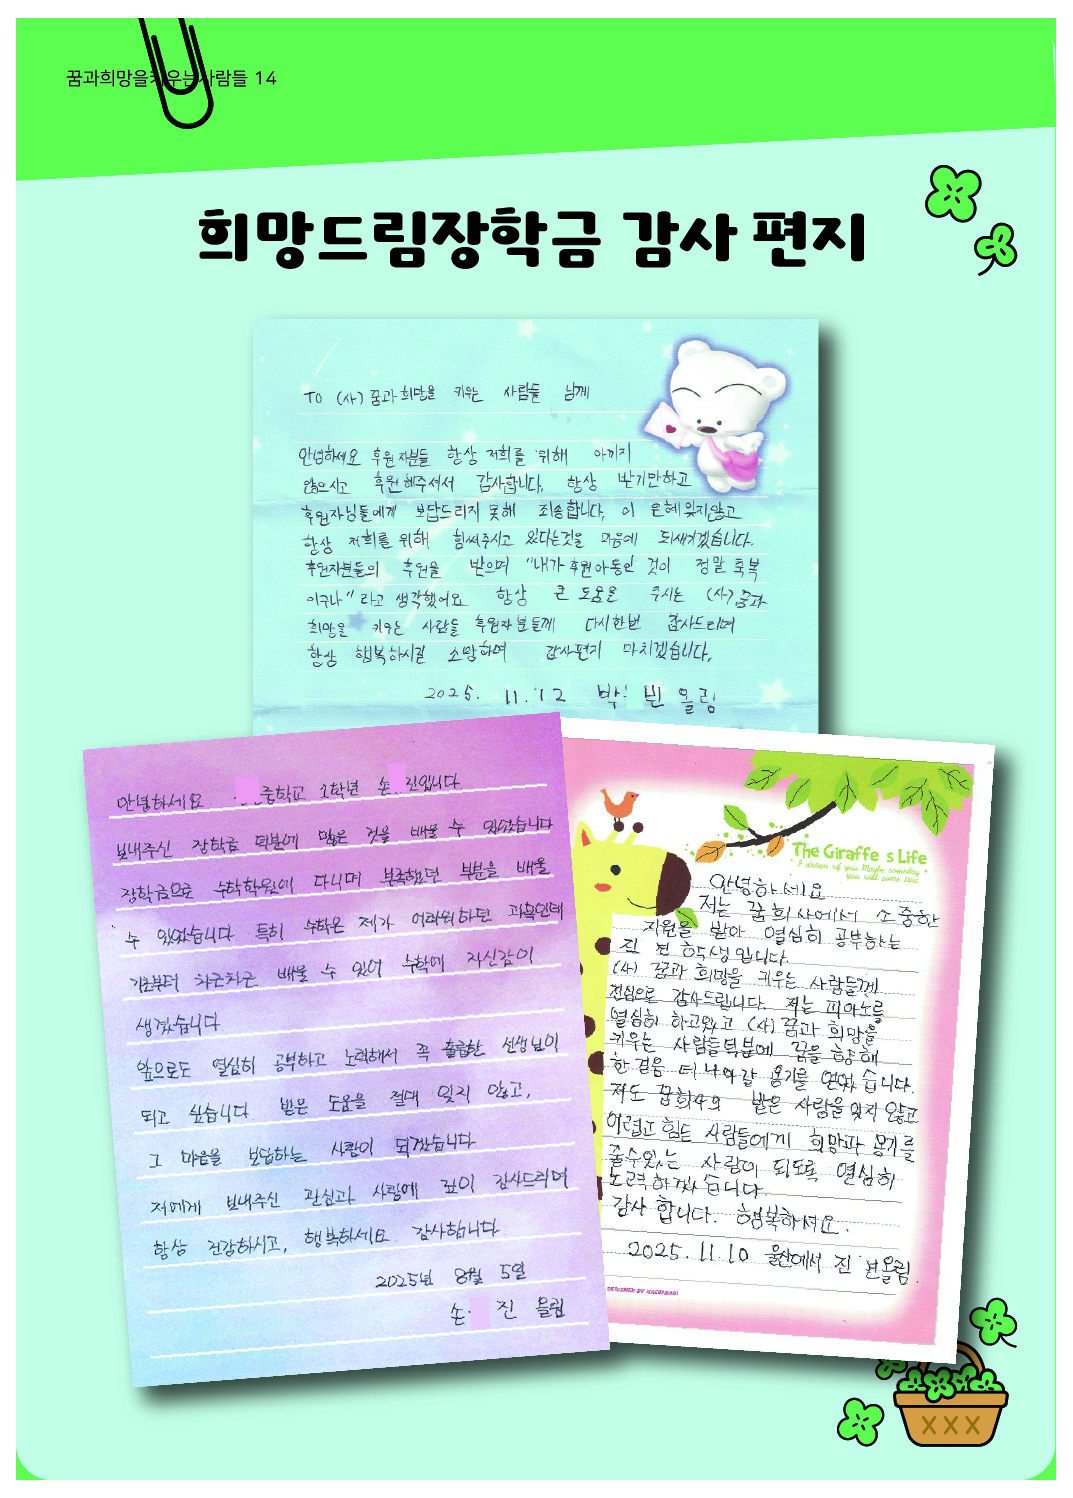 꿈과희망을키우는사람들 14
희망드림장학금 감사 편지
TO (사)꿈과희망을 키우는 사람들 님께
안녕하세요 후원자분들 항상 저희를 위해 아끼지
않으시고 후원해주셔서 감사합니다. 항상 받기만하고
후원자님들에게 보답드리지 못해 죄송합니다. 이 은혜잊지않고
항상 저희를 위해 힘써주시고 있다는것을 마음에 되새기겠습니다.
후원자분들의 후원을 받으며 "내가 후원아동인 것이 정말 축복
이구나" 라고 생각했어요 항상 큰 도움을 주시는 (사)꿈과
희망을 키우는 사람들 후원자분들께 다시한번 감사드리며
항상 행복하시길 소망하며 감사편지 마치겠습니다.
2025. 11. 12 박 빈 올림
안녕하세요 중학교 1학년 손 진입니다
보내주신 장학금 덕분에 많은 것을 배울 수 있었습니다
장학금으로 수학학원에 다니며 부족했던 부분을 배울
수 있었습니다 특히 수학은 제가 어려워하던 과목인데
기초부터 차근차근 배울 수 있어 수학에 자신감이
생겼습니다
앞으로도 열심히 공부하고 노력해서 꼭 훌륭한 선생님이
되고 싶습니다 받은 도움을 절대 잊지 않고,
그 마음을 보답하는 사람이 되겠습니다
저에게 보내주신 관심과 사랑에 깊이 감사드리며
항상 건강하시고, 행복하세요 감사합니다
2025년 8월 5일
손 진 올림
The Giraffe s Life
I dream of you Maybe someday
you will come true
안녕하세요
저는 꿈희사에서 소중한
지원을 받아 열심히 공부하는
진 현 학생입니다.
(사) 꿈과 희망을 키우는 사람들께
진심으로 감사드립니다. 저는 피아노를
열심히 하고있고 (사)꿈과 희망을
키우는 사람들덕분에 꿈을 향해
한 걸음 더 나아갈 용기를 얻었습니다.
저도 꿈희사의 받은 사랑을 잊지 않고
어렵고 힘든 사람들에게 희망과 용기를
줄수있는 사람이 되도록 열심히
노력하겠습니다.
감사합니다. 행복하세요.
2025. 11. 10 울산에서 진 현올림.
DESIGNED BY